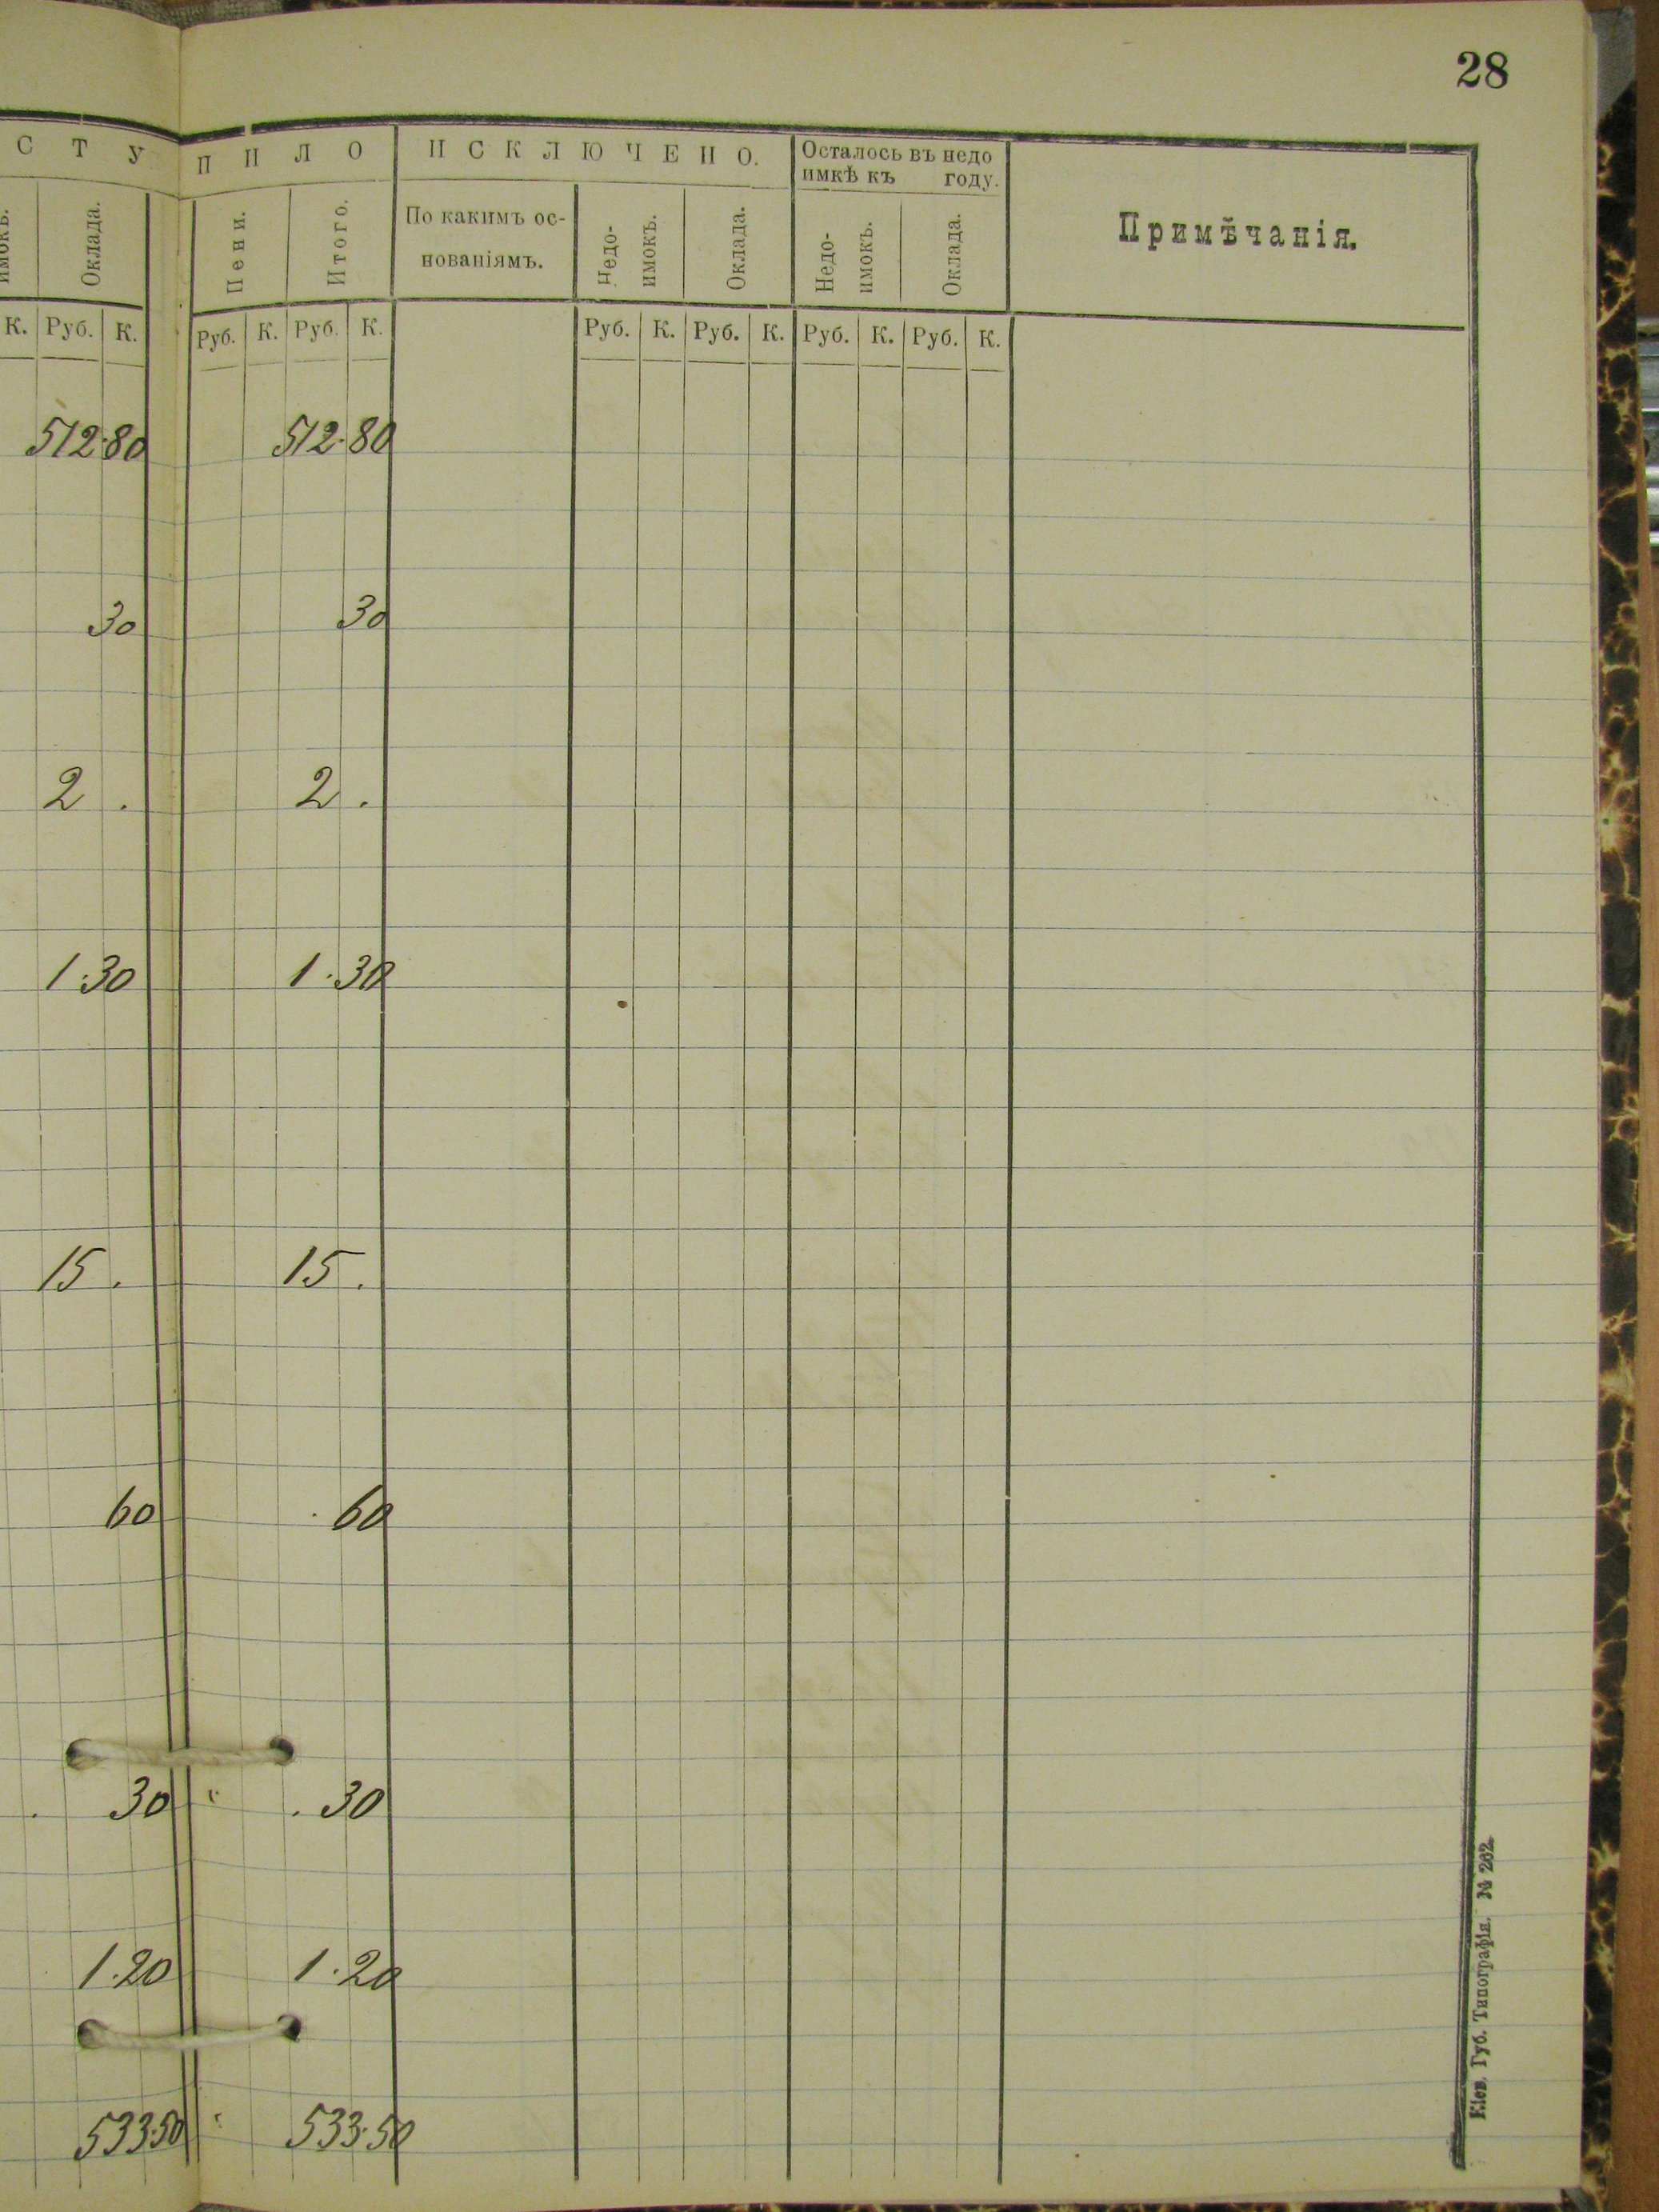 28
СТУПИЛО ИСКЛЮЧЕНО. Осталось въ недо
имкѣ къ году.
имокъ. Оклада. Пени. Итого. По какимъ ос-
нованіямъ. Недо-
имокъ. Оклада. Недо-
имокъ. Оклада. Примѣчанія.
К. Руб. К. Руб. К. Руб. К. Руб. К. Руб. К. Руб. К. Руб. К.
512.80 512.80
30 30
2 . 2 .
1.30 1.30
15 . 15 .
60 . 60
. 30 " . 30
1.20 1.20
533.50 " 533.50
Кіев. Губ. Типографія. № 262.